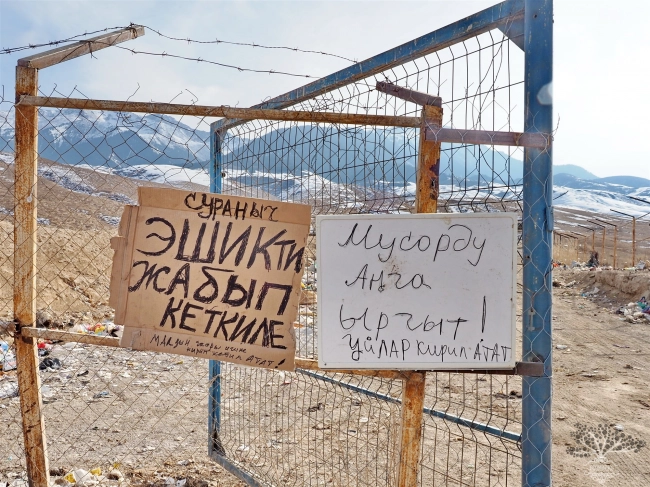 СУРАНЫЧ
ЭШИКТИ
ЖАБЫП
КЕТКИЛЕ
МАЛДИН
АТАТ!
Мусорду
Аңга
ЫРГЫТ!
УЙЛАР КИРИП АТАТ